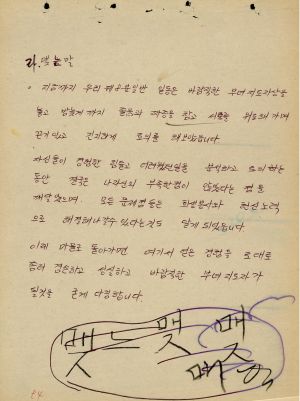 라. 맺는말
· 지금까지 우리 일반 일동은 바람직한 부녀지도자상을
놓고 밤늦게까지 졸음과 하품을 참고 서로를 위로해 가며
끈기있고 진지하게 토의를 해보았읍니다.
자신들이 경험한 힘들고 어려웠던일을 분석하고 토의하는
동안 결국은 나자신의 부족한점이 많았다는 점을
깨달았으며, 모든 문제점들은 희생봉사와 헌신 노력
으로 해결해나갈수 있다는것도 알게 되었읍니다.
이제 마을로 돌아가면 여기서 얻은 경험을 토대로
좀더 겸손하고 성실하고 바람직한 부녀지도자가
될것을 굳게 다짐합니다.
맺는 맺 맺
84